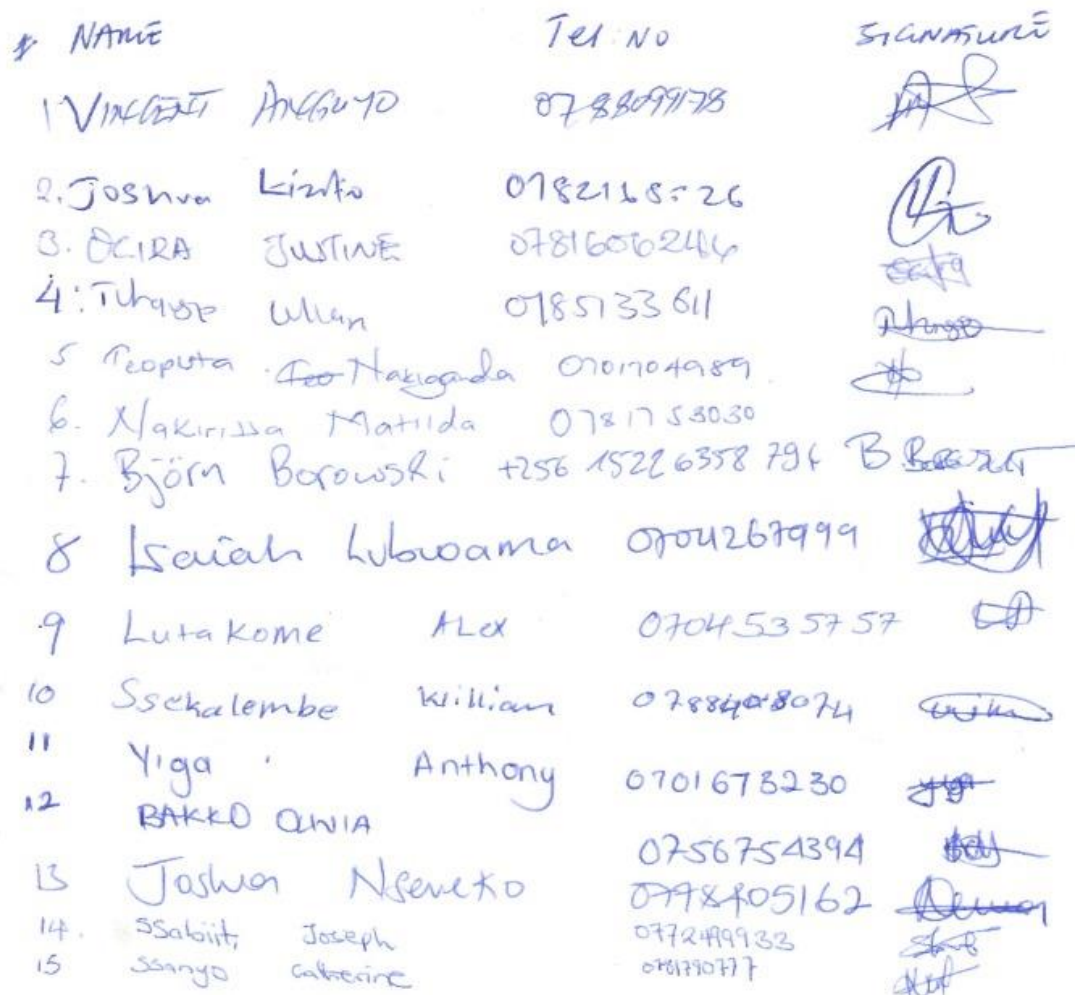 # NAME Tel: NO SIGNATURE
1 VINCENT ANGGUYO 0788099178
2. Joshua Kizito
3. OCIRA JUSTINE 07816062446
4: 0785133611
5 Teoputa Nakiganda 0701704989
6. Nakirijja Matilda 0781753030
7. Björn Borowski +256 15226358 796 B. Borowski
8 Isaiah Lubwama 0704267999
9 Lutakome ALex 0704535757
10 Ssekalembe William 0788408074
11 Yiga Anthony 0701673230
12 BAKKO OLIVIA 0756754394
13 Joshua Nseveko 0778405162
14. SSabiiti Joseph 0772499933
15 SSanyo Catherine 0781790777